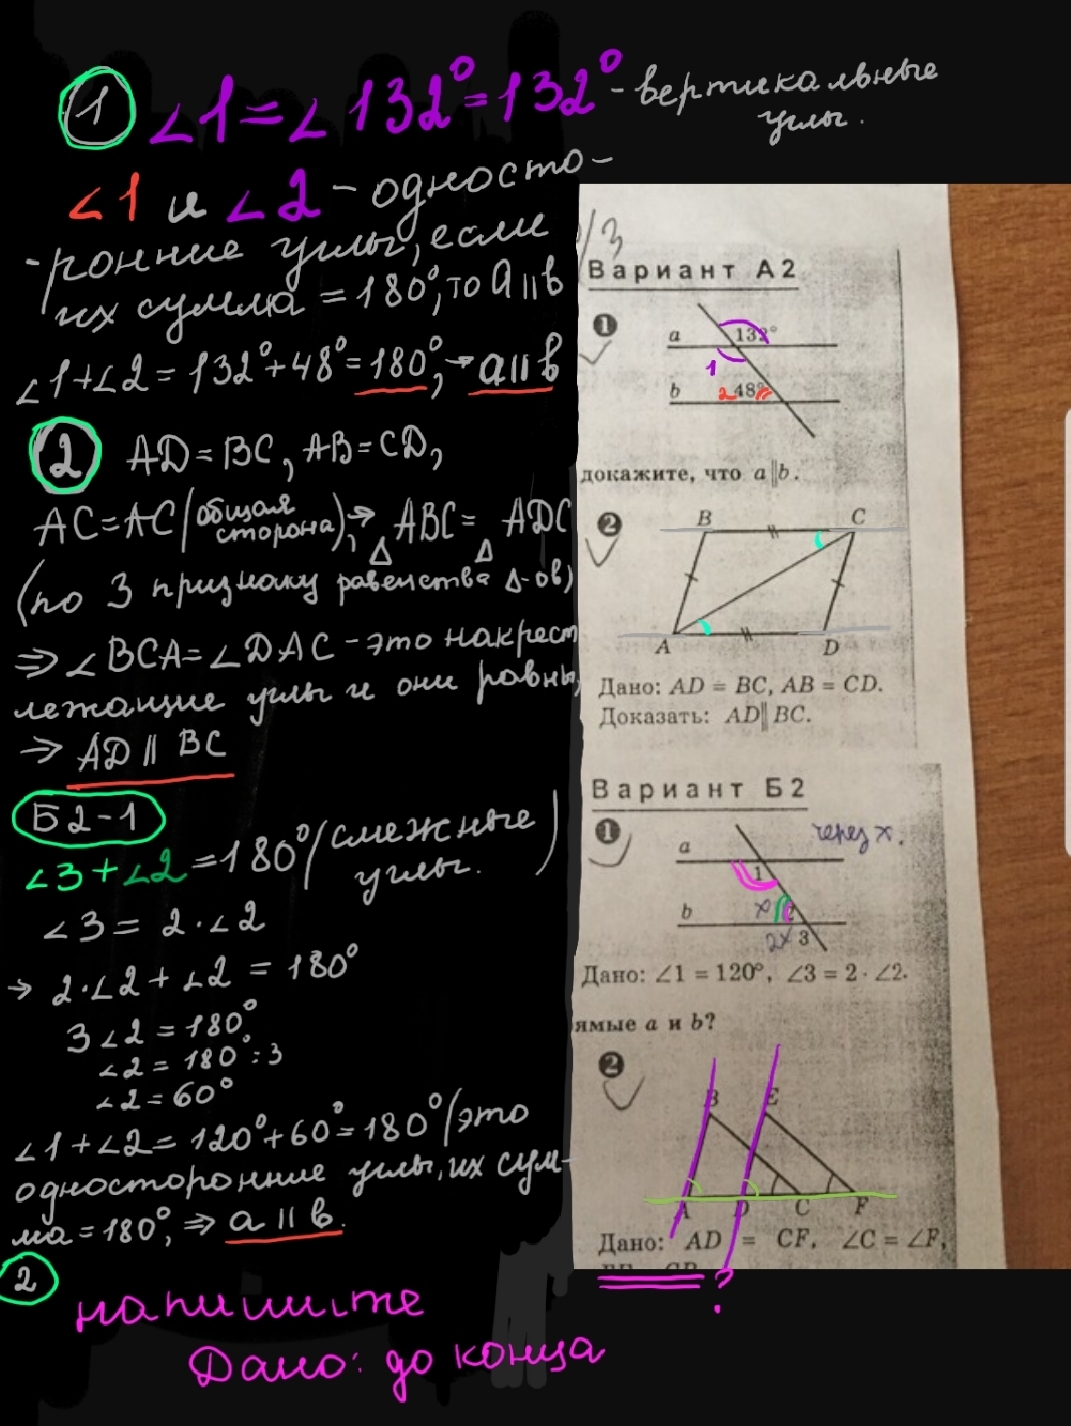 1 ∠1=∠132°=132° - вертикальные
углы.
∠1 и ∠2 - односто-
-ронние углы, если
их сумма = 180°, то a||b
∠1+∠2=132°+48°=180°, → a||b
2 AD=BC, AB=CD,
AC=AC (общая
сторона), → ABC= ADC
Δ Δ
(по 3 признаку равенства Δ-ов)
⇒ ∠BCA=∠DAC - это накрест
лежащие углы и они равны,
⇒ AD || BC
Б2-1
∠3+∠2=180° (смежные
углы.)
∠3= 2·∠2
→ 2·∠2+∠2 = 180°
3∠2=180°
∠2= 180°:3
∠2=60°
∠1+∠2=120°+60°=180° (это
односторонние углы, их сум-
ма=180°, ⇒ a || b.
2
напишите
Дано: до конца
/3
Вариант А2
1
a 132°
1
b 2 48°
докажите, что a||b.
2
B C
A D
Дано: AD = BC, AB = CD.
Доказать: AD|| BC.
Вариант Б2
1 через x.
a
1
b x 2
2x 3
Дано: ∠1 = 120°, ∠3 = 2 · ∠2.
ямые a и b?
2
B E
A D C F
Дано: AD = CF, ∠C = ∠F,
?